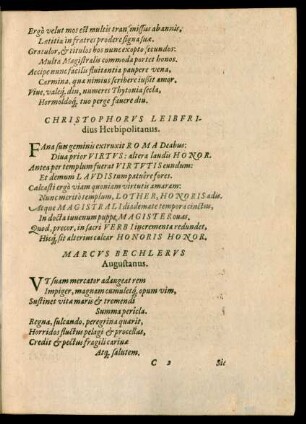 Ergò velut mos est multis transmissus ab annis,
Lætitia in fratres prodere signa suæ.
Gratulor, & titulos hos nunc exopto secundos:
Multa Magistralis commoda portet honos.
Accipe nunc facilis fluitantia paupere vena,
Carmina, qua nimius scribere iussit amor.
Vive, valeq́; diu, numeres Thytonia secla,
Hermolaoq́; tuo perge favere diu.
CHRISTOPHORVS LEIBFRI-
dius Herbipolitanus.
FAna sum geminis extruxit ROMA Deabus:
Diva prior VIRTVS: altera laudis HONOR.
Antea per templum fuerat VIRTVTIS eundum:
Et demum LAVDIS tum patuêre fores.
Calcasti ergò viam quoniam virtutis amaram:
Nunc meritò templum, LOTHER, HONORIS adis.
Atque MAGISTRALI diademate tempora cinctus,
In docta iuvenum puppe, MAGISTER ovas,
Quod, precor, in sacri VERBI incrementa redundet,
Hicq́; sit alterius calcar HONORIS HONOR.
MARCVS BECHLERVS
Augustanus.
VT suam mercator adaugeat rem
Impiger, magnam cumuletq́; opum vim,
Sustinet vita maris & tremendi
Summa pericla.
Regna, sulcando, peregrina quærit,
Horridos fluctus pelagi & procellas,
Credit & pectus fragili carinæ
Atq́; salutem.
C 2
Sic